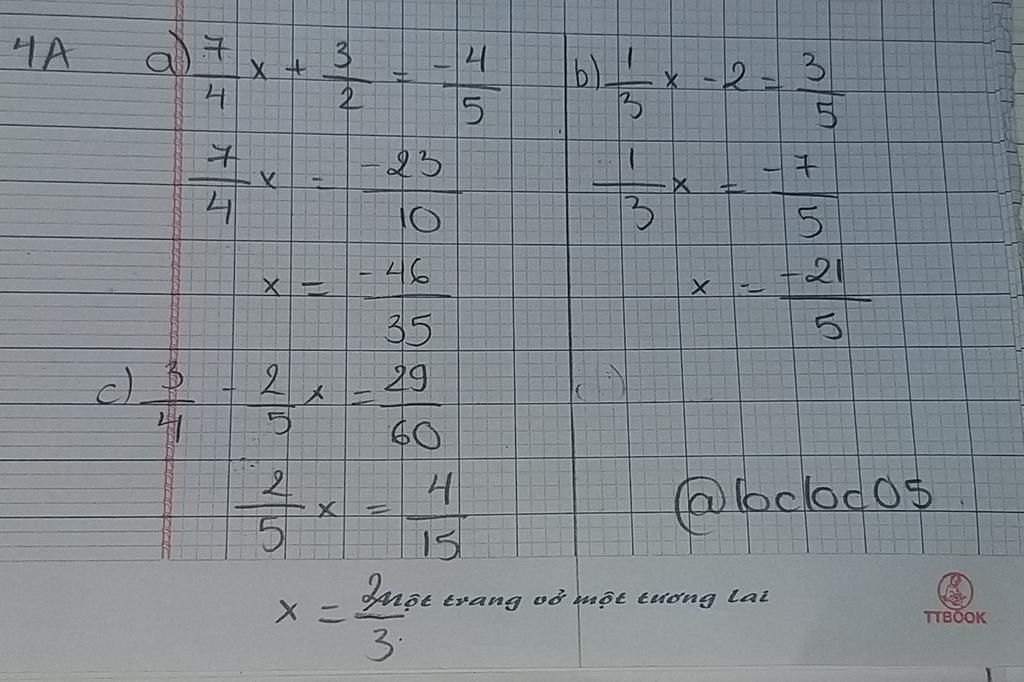 4A a) 7/4 x + 3/2 = -4/5
7/4 x = -23/10
x = -46/35
b) 1/3 x - 2 = 3/5
1/3 x = -7/5
x = -21/5
c) 3/4 - 2/5 x = 29/60
2/5 x = 4/15
x = 2/3
@locloc05
Một trang vở một tương lai
TTBOOK